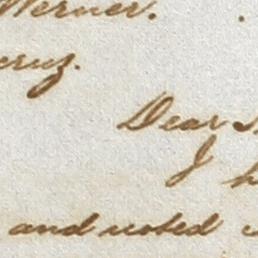 Werner.
cruz.
Dear
I
and noted